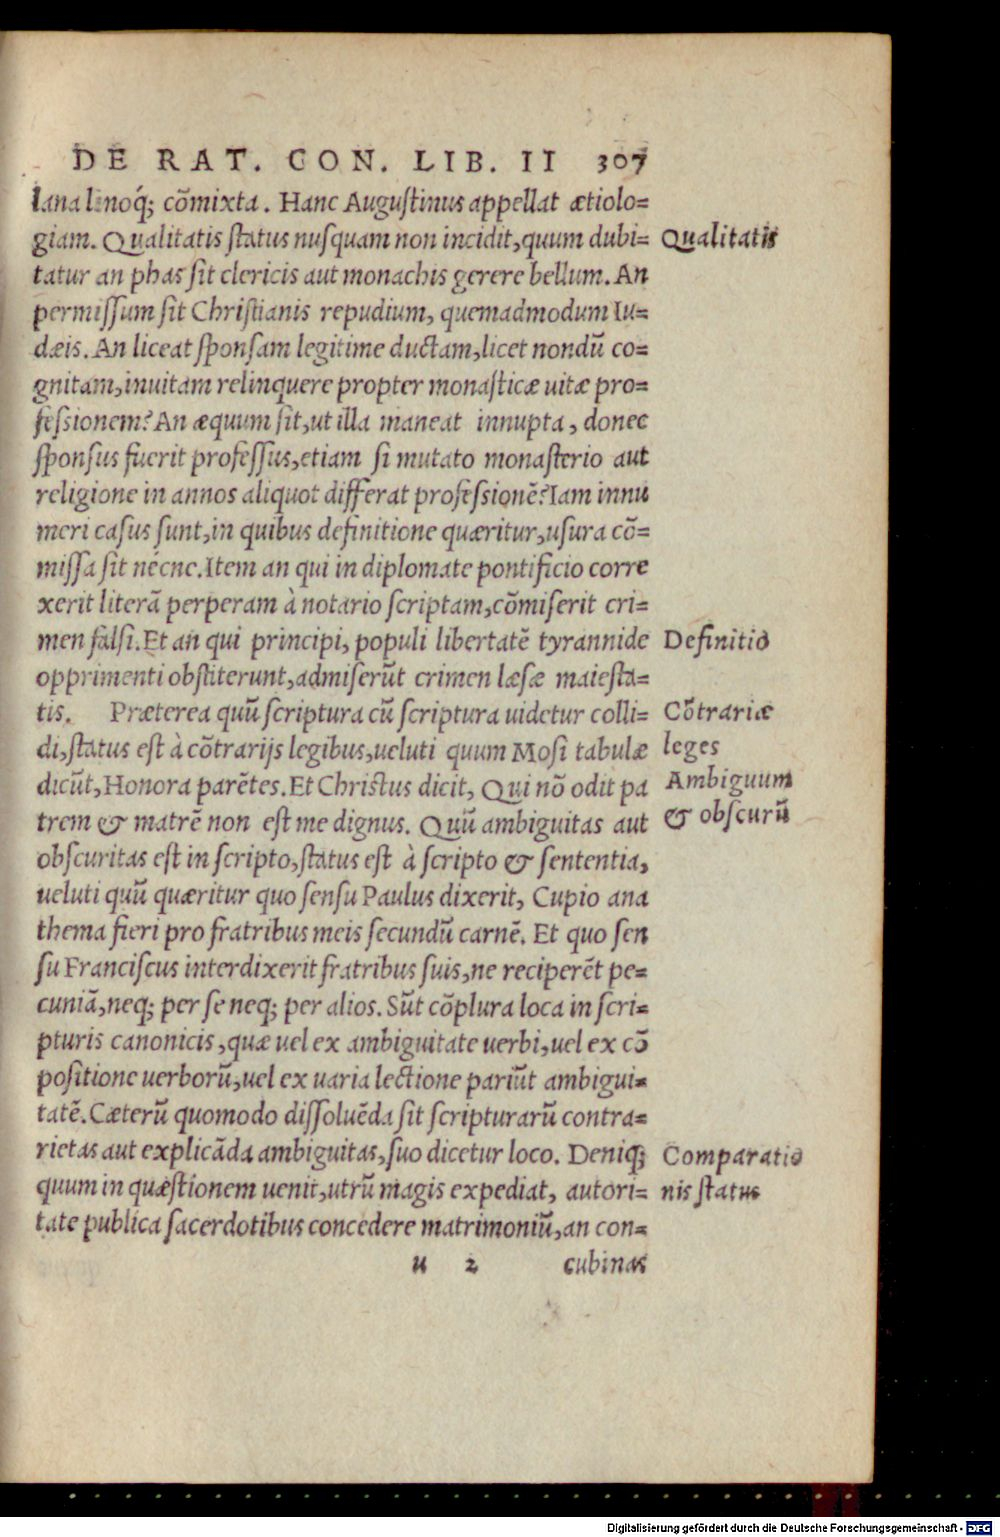 DE RAT. CON. LIB. II 307
lana linoq́; cōmixta. Hanc Auguſtinus appellat ætiolo=
giam. Qualitatis ſtatus nuſquam non incidit, quum dubi=
Qualitatis
tatur an phas ſit clericis aut monachis gerere bellum. An
permiſſum ſit Chriſtianis repudium, quemadmodum Iu=
dæis. An liceat ſponſam legitime ductam, licet nondū co=
gnitam, inuitam relinquere propter monaſticæ uitæ pro=
feſsionem? An æquum ſit, ut illa maneat innupta, donec
ſponſus fuerit profeſſus, etiam ſi mutato monaſterio aut
religione in annos aliquot differat profeſsionē? Iam innu
meri caſus ſunt, in quibus definitione quæritur, uſura cō=
miſſa ſit nécne. Item an qui in diplomate pontificio corre
xerit literā perperam à notario ſcriptam, cōmiſerit cri=
men falſi. Et an qui principi, populi libertatē tyrannide
Definitio
opprimenti obſtiterunt, admiſerūt crimen læſæ maieſta=
tis. Præterea quū ſcriptura cū ſcriptura uidetur colli=
Cōtrariæ
di, ſtatus eſt à cōtrarijs legibus, ueluti quum Moſi tabulæ
leges
dicūt, Honora parētes. Et Chriſtus dicit, Qui nō odit pa
Ambiguum
trem & matrē non eſt me dignus. Quū ambiguitas aut
& obſcurū
obſcuritas eſt in ſcripto, ſtatus eſt à ſcripto & ſententia,
ueluti quū quæritur quo ſenſu Paulus dixerit, Cupio ana
thema fieri pro fratribus meis ſecundū carnē. Et quo ſen
ſu Franciſcus interdixerit fratribus ſuis, ne reciperēt pe=
cuniā, neq; per ſe neq; per alios. Sūt cōplura loca in ſcri=
pturis canonicis, quæ uel ex ambiguitate uerbi, uel ex cō
poſitione uerborū, uel ex uaria lectione pariūt ambigui=
tatē. Cæterū quomodo diſſoluēda ſit ſcripturarū contra=
rietas aut explicāda ambiguitas, ſuo dicetur loco. Deniq;
Comparatio
quum in quæſtionem uenit, utrū magis expediat, autori=
nis ſtatus
tate publica ſacerdotibus concedere matrimoniū, an con=
u 2 cubinas
Digitalisierung gefördert durch die Deutsche Forschungsgemeinschaft - DFG